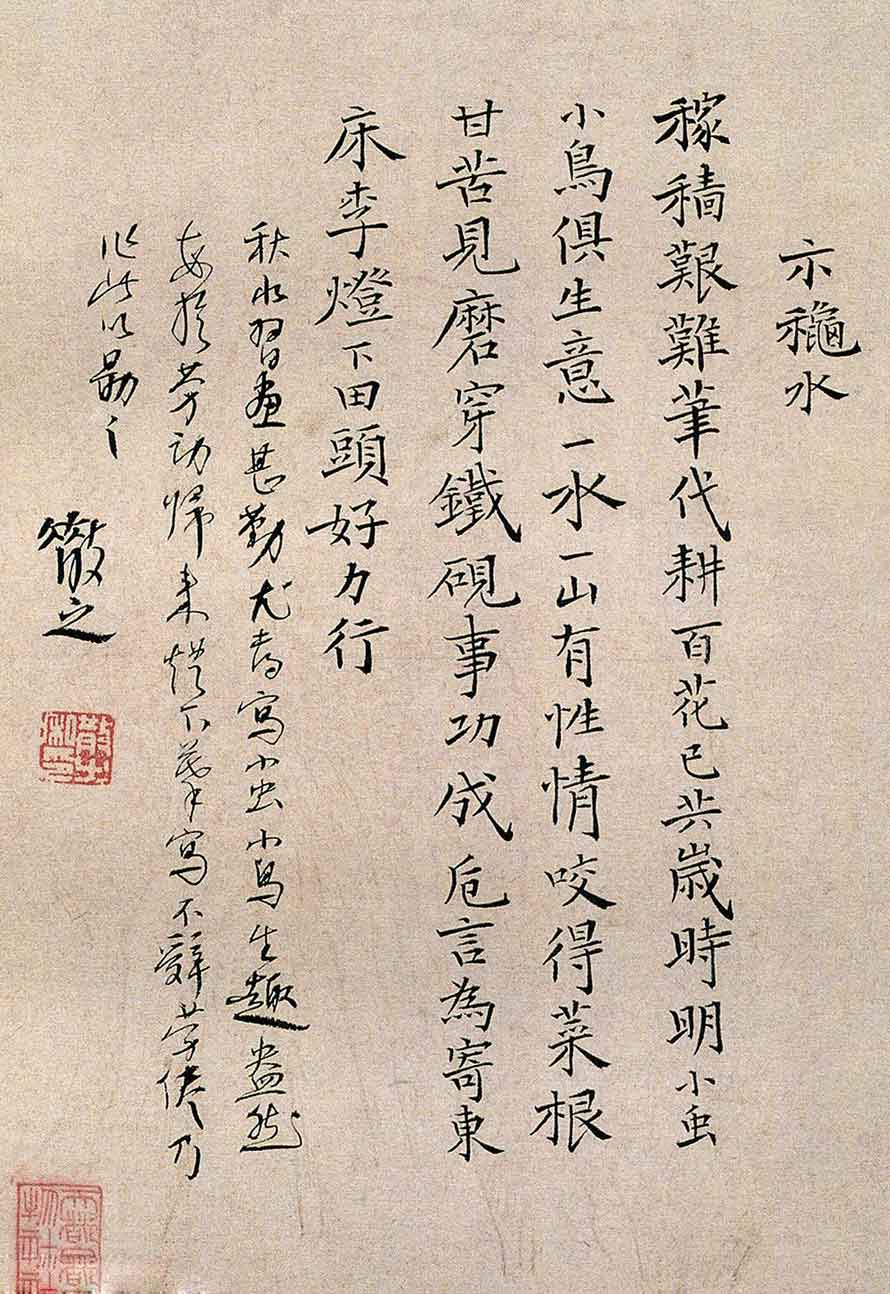 示穐水
稼穡艱難筆代耕百花已共歲時明小虫
小鳥俱生意一水一山有性情咬得菜根
甘苦見磨穿鐵硯事功成卮言為寄東
床李燈下田頭好力行
秋水習畫甚勤尤喜寫小虫小鳥生趣盎然
每於劳动歸来燈下摹寫不辭劳倦乃
作此以勗之
散之